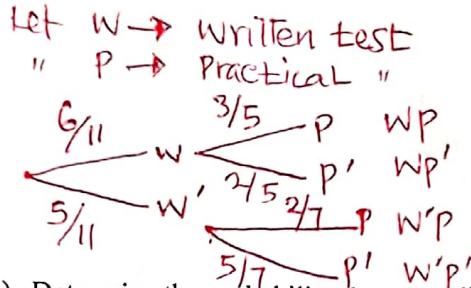 Let W → written test
" P → Practical "
6/11 W 3/5 P WP
2/5 P' WP'
5/11 W' 2/7 P W'P
5/7 P' W'P'